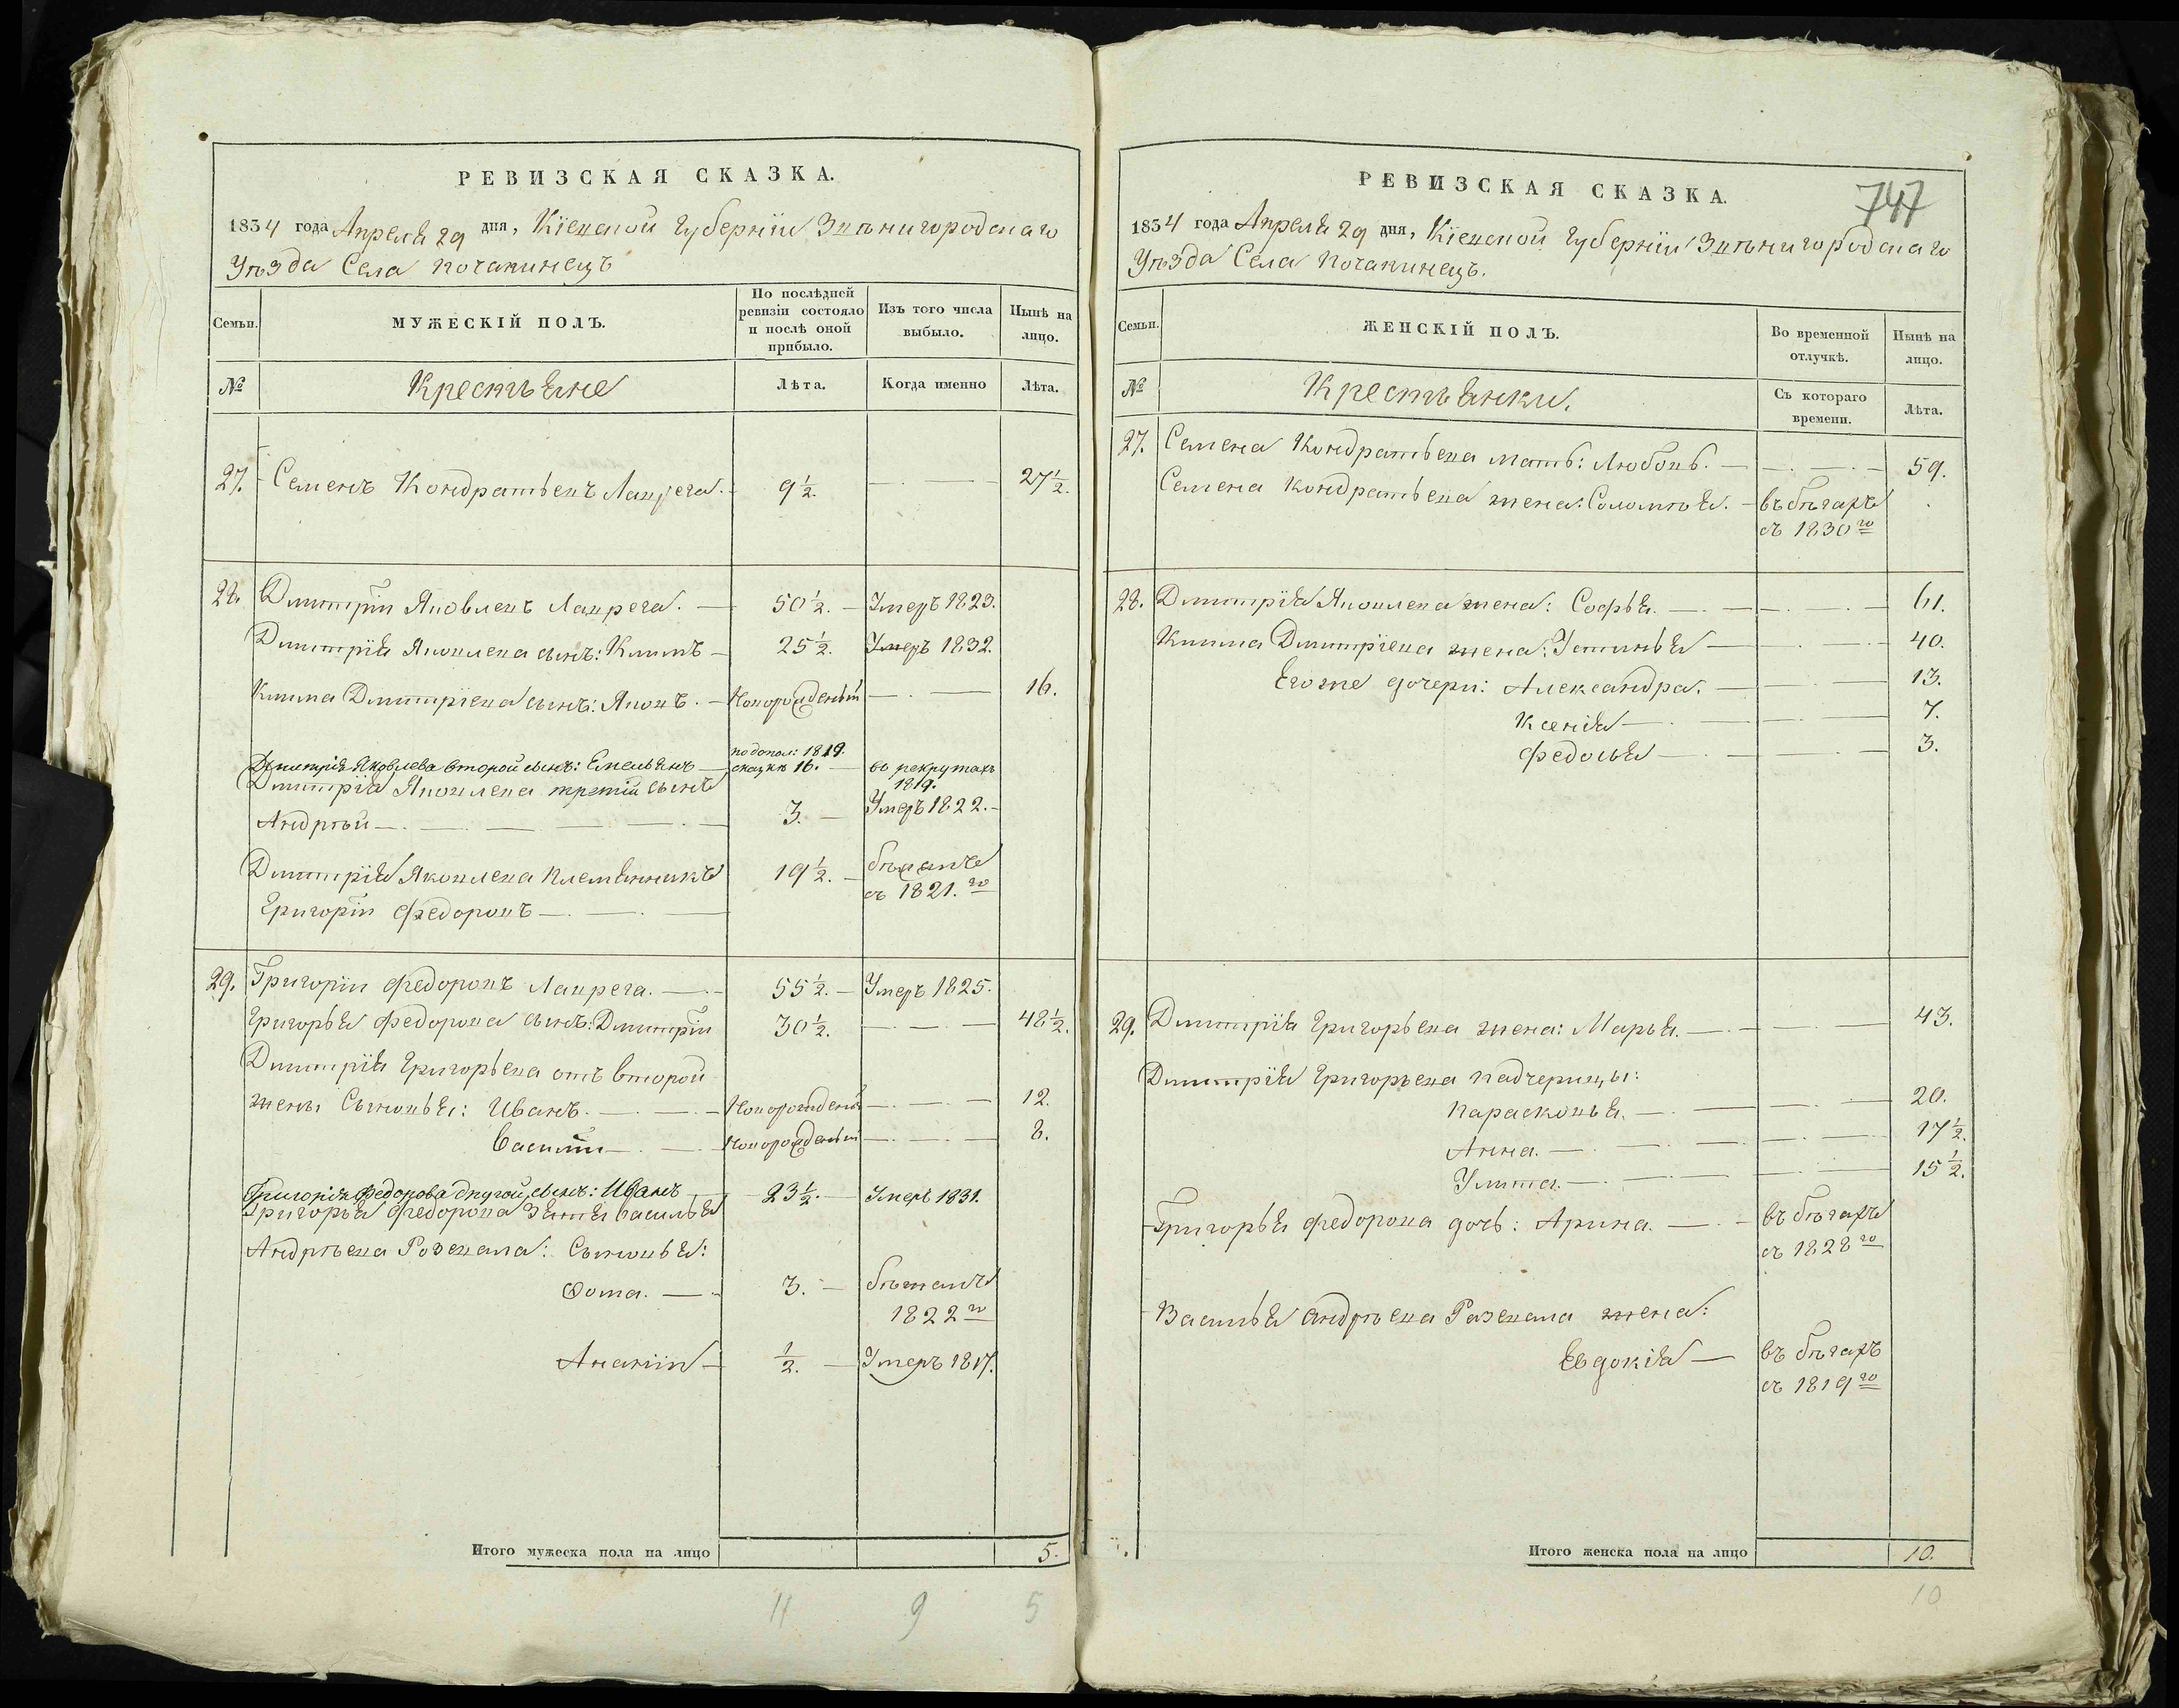 РЕВИЗСКАЯ СКАЗКА.
1834 года Апреля 29 дня, Кіевской Губерніи Звѣнигородскаго
Уѣзда Села Почапинецъ
Семьи.
МУЖЕСКІЙ ПОЛЪ.
По послѣдней ревизіи состояло и послѣ оной прибыло.
Изъ того числа выбыло.
Нынѣ на лицо.
№
Крестьяне
Лѣта.
Когда именно
Лѣта.
27. Семенъ Кондратьевъ Лаврега. 9 1/2. 27 1/2.
28. Дмитрій Яковлевъ Лаврега. 50 1/2. Умеръ 1823.
Дмитрія Яковлева сынъ: Климъ 25 1/2. Умеръ 1832.
Клима Дмитріева сынъ: Яковъ. Новорожденый 16.
Дмитрія Яковлева второй сынъ: Емельянъ по допол: 1819. сказкѣ 16. въ рекрутахъ 1819.
Дмитрія Яковлева третій сынъ
Андрѣй 3. Умеръ 1822.
Дмитрія Яковлева племянникъ 19 1/2. бѣжалъ
Григорій Федоровъ съ 1821.го
29. Григорій Федоровъ Лаврега. 55 1/2. Умеръ 1825.
Григорья Федорова сынъ: Дмитрій 30 1/2. 48 1/2.
Дмитрія Григорьева отъ второй
жены Сыновья: Иванъ. Новорожденый 12.
Василій Новорожденый 8.
Григорія Федорова другой сынъ: Иванъ 23 1/2. Умеръ 1831.
Григорья Федорова Зятя Василья
Андрѣева Сыновья:
Фома. 3. бѣжалъ
1822го
Ананій 1/2. Умеръ 1817.
Итого мужеска пола на лицо 5.
11 9 5
РЕВИЗСКАЯ СКАЗКА.
747
1834 года Апреля 29 дня, Кіевской Губерніи Звѣнигородскаго
Уѣзда Села Почапинецъ.
Семьи.
ЖЕНСКІЙ ПОЛЪ.
Во временной отлучкѣ.
Нынѣ на лицо.
№
Крестьянки.
Съ котораго времени.
Лѣта.
27. Семена Кондратьева мать: Любовь. 59.
Семена Кондратьева жена: Соломія. въ бѣгахъ
съ 1830го
28. Дмитрія Яковлева жена: Софья. 61.
Клима Дмитріева жена: Устинья 40.
Егоже дочери: Александра. 13.
Ксенія 7.
Федосья 3.
29. Дмитрія Григорьева жена: Марья. 43.
Дмитрія Григорьева падчерицы:
Парасковья. 20.
Анна. 17 1/2.
Улита. 15 1/2.
Григорья Федорова дочь: Арина. въ бѣгахъ
съ 1828го
Василья Андрѣева жена:
Евдокія въ бѣгахъ
съ 1819го
Итого женска пола на лицо 10.
10